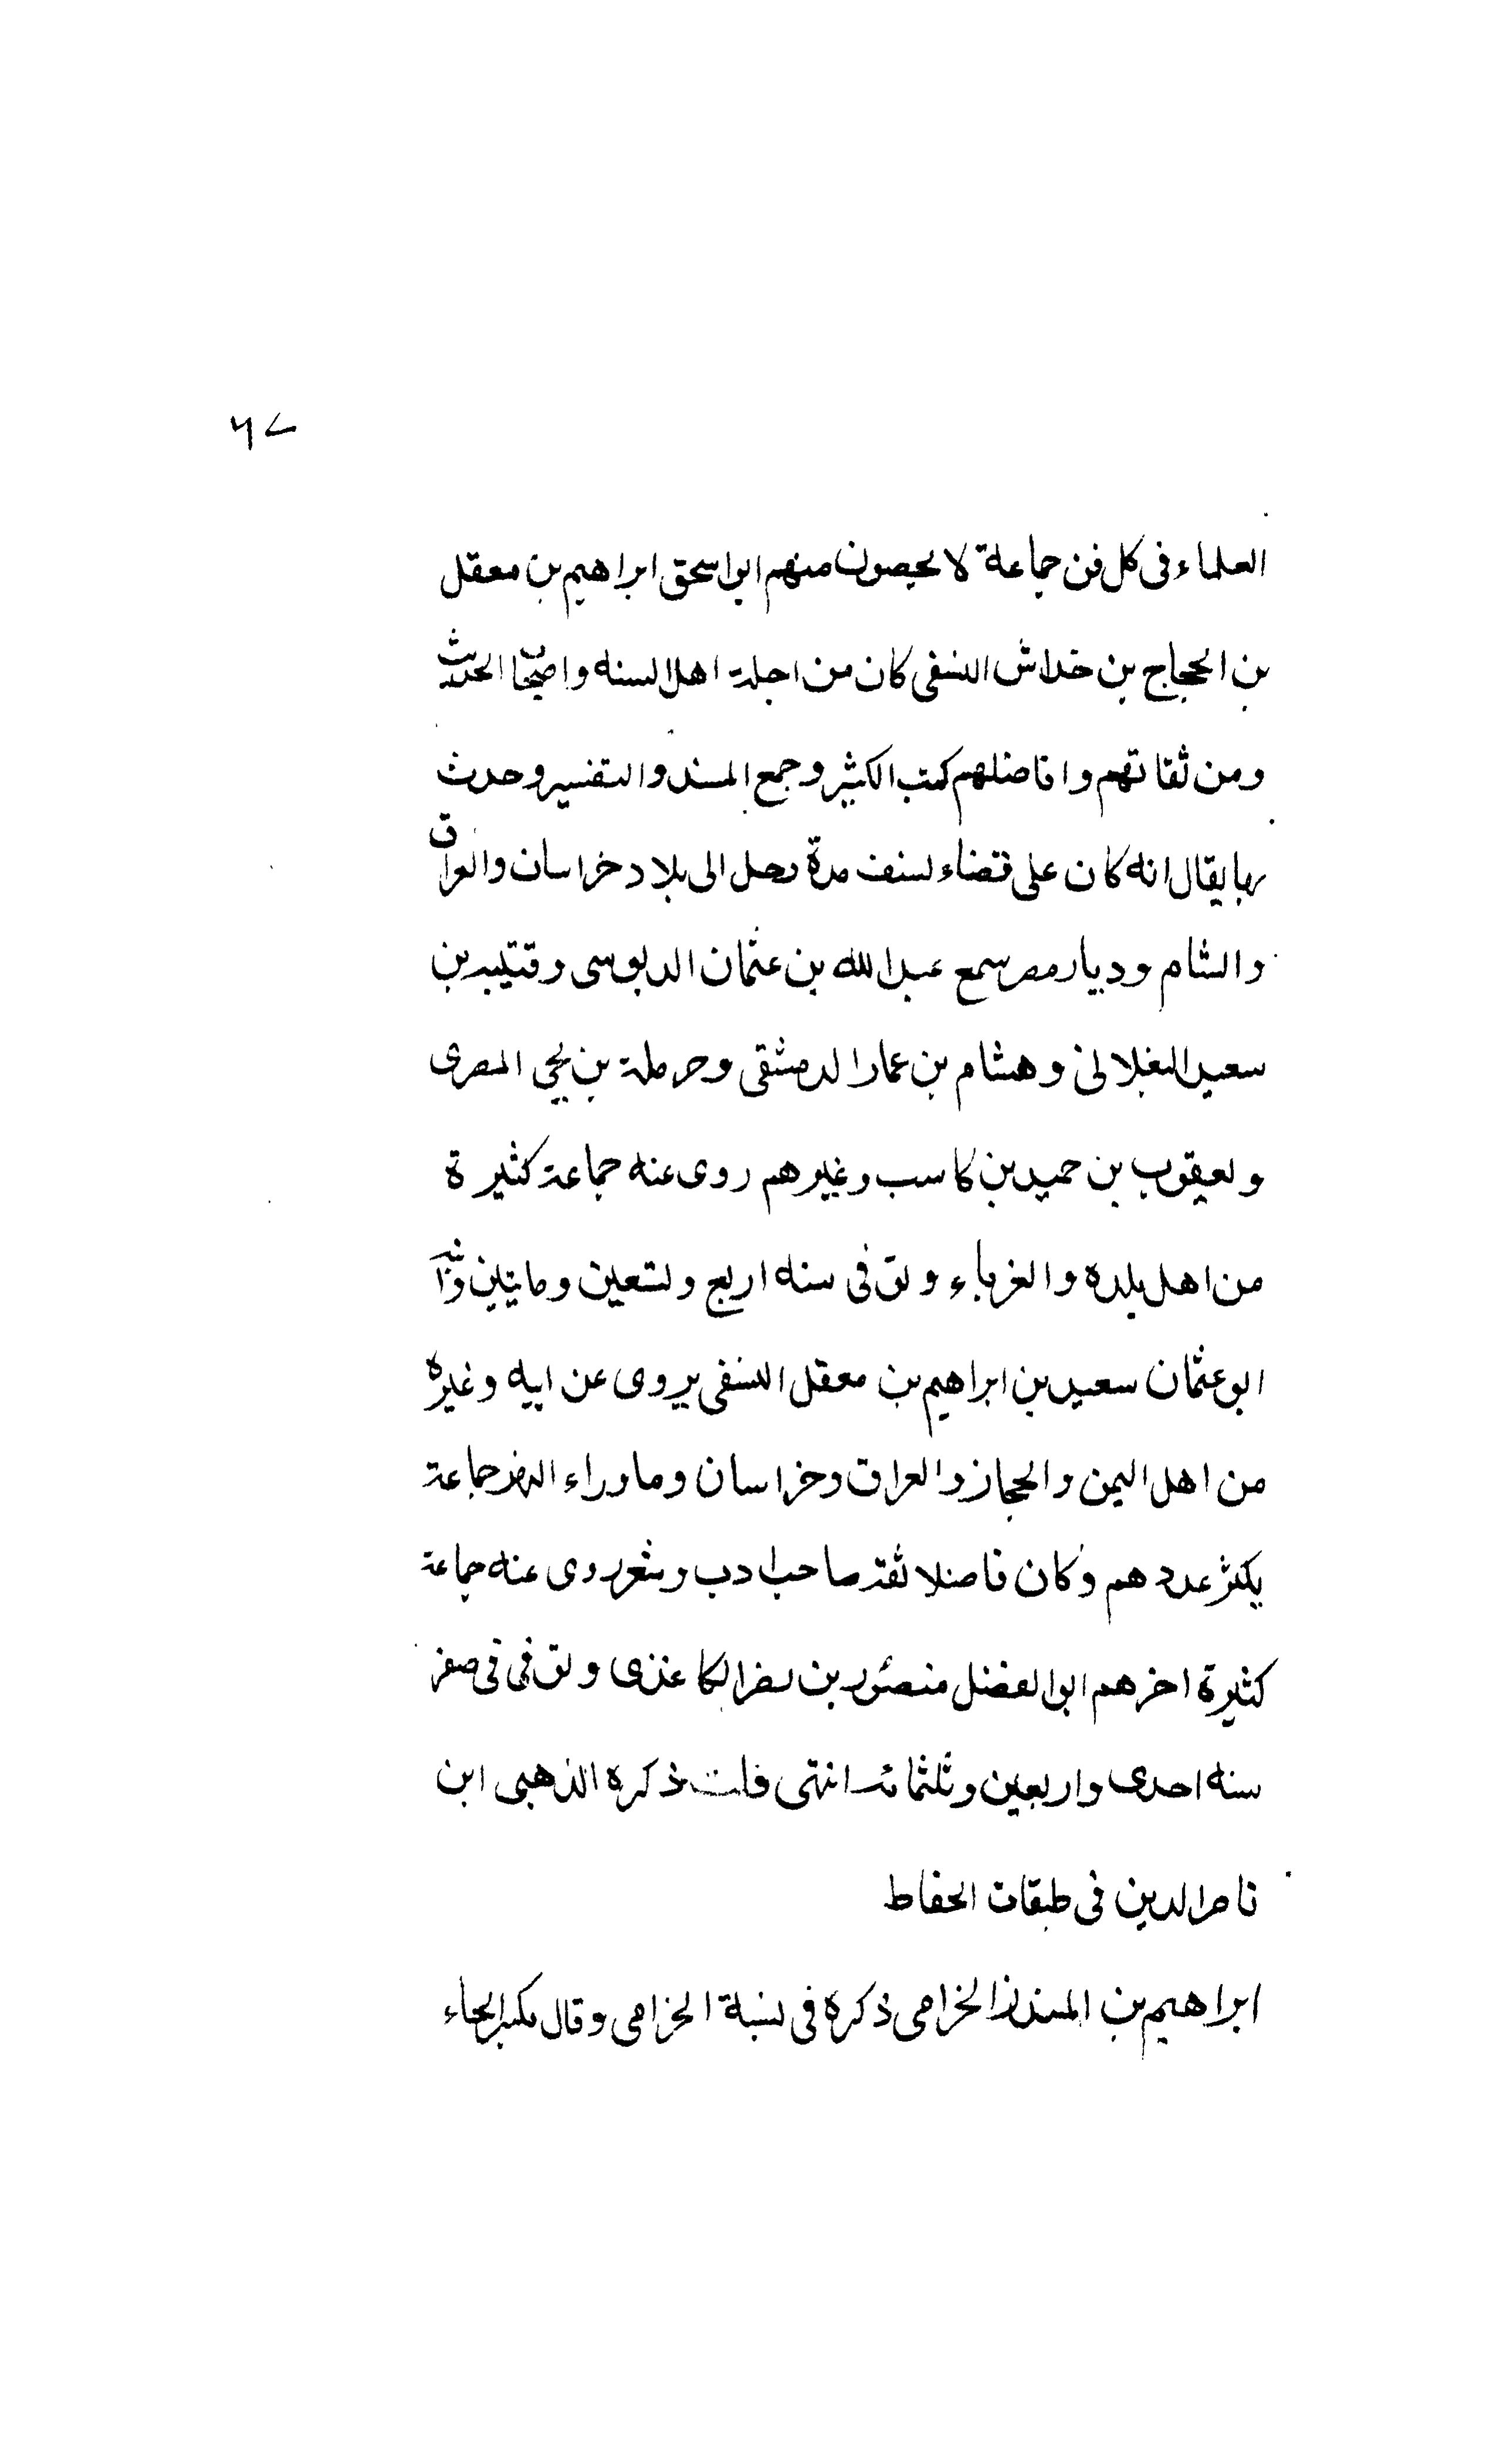 ٦٧
العلماء فى كل فن جماعة لا يحصون منهم ابو اسحق ابراهيم بن معقل
بن الحجاج بن خداش النسفى كان من اجلة اهل السنه واصحاب الحديث
ومن ثقاتهم وافاضلهم كتب الكثير وجمع المسند والتفسير وحدث
بها يقال انه كان على قضاء نسف مدة رحل الى بلاد خراسان والعراق
والشام وديار مصر سمع عبد الله بن عثمان الدبوسى وقتيبه بن
سعيد البغلانى وهشام بن عمار الدمشقى وحرملة بن يحيى المصرى
ويعقوب بن حميد بن كاسب وغيرهم روى عنه جماعة كثيرة
من اهل بلده والغرباء وتوفى سنه اربع وتسعين ومايتين وابنه
ابو عثمان سعيد بن ابراهيم بن معقل النسفى يروى عن ابيه وغيره
من اهل اليمن والحجاز والعراق وخراسان وما وراء النهر جماعة
يكثر عددهم وكان فاضلا ثقة صاحب ادب وشعر روى عنه جماعة
كثيرة اخرهم ابو الفضل منصور بن نصر الكاغذى وتوفى فى صفر
سنه احدى واربعين وثلثمائة انتهى قلت ذكره الذهبى ابن
ناصر الدين فى طبقات الحفاظ
ابراهيم بن المنذر الخزامى ذكره فى نسبة الخزامى وقال بكسر الحاء